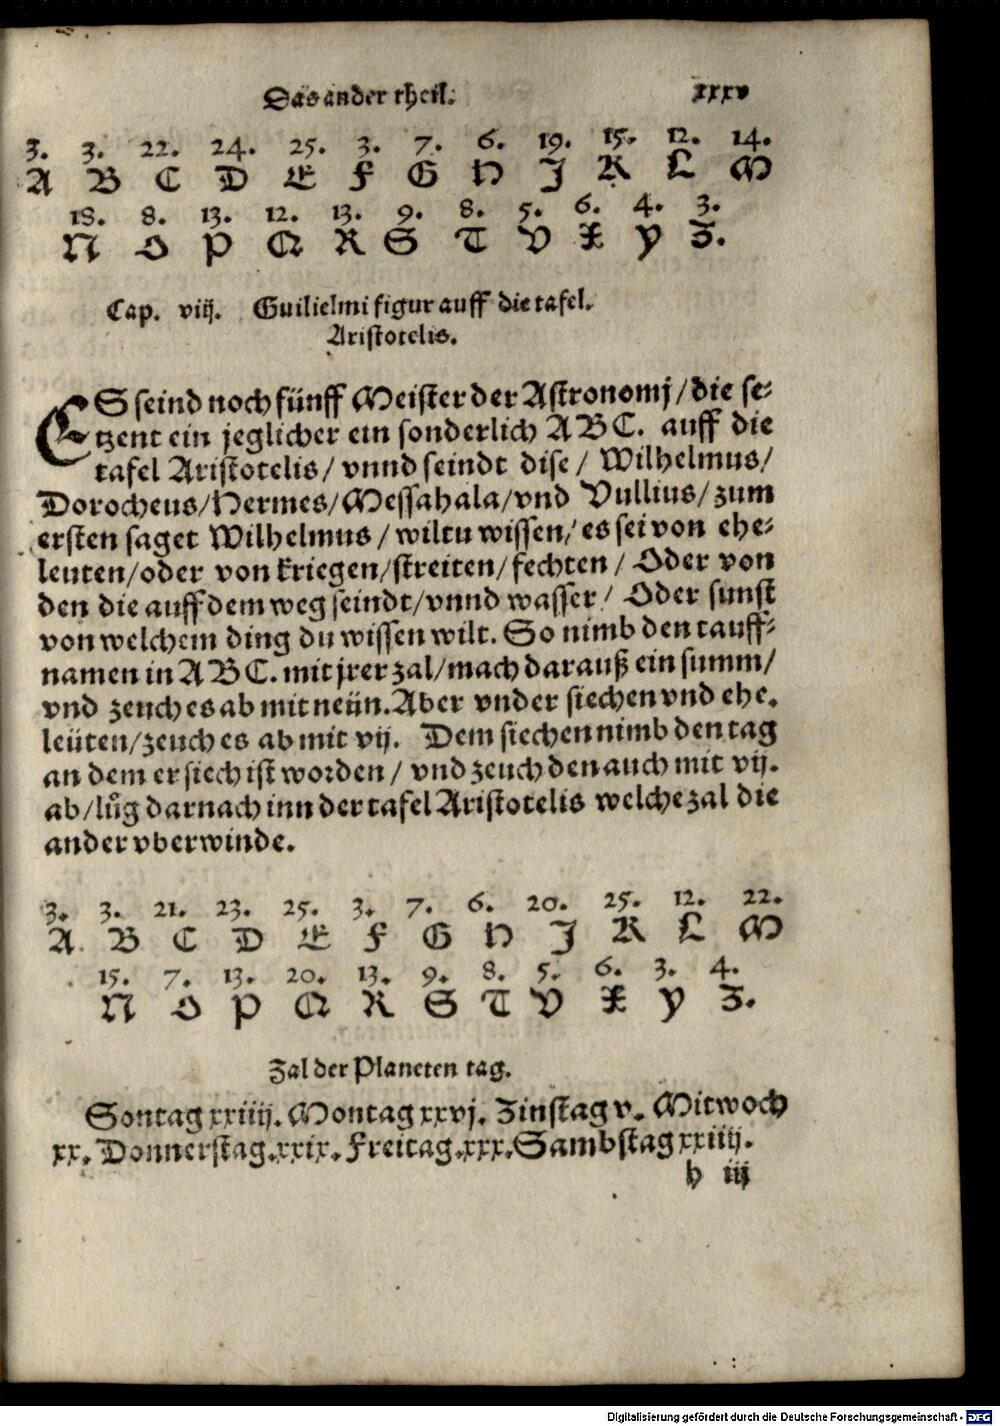 Das ander theil. xxxv
3. 3. 22. 24. 25. 3. 7. 6. 19. 15. 12. 14.
A B C D E F G H J K L M
18. 8. 13. 12. 13. 9. 8. 5. 6. 4. 3.
N O P Q R S T V X Y Z.
Cap. viij. Guilielmi figur auff die tafel.
Aristotelis.
ES seind noch fünff Meister der Astronomj/die se-
tzent ein jeglicher ein sonderlich A B C. auff die
tafel Aristotelis/ vnnd seindt dise/ Wilhelmus/
Dorocheus/Hermes/Messahala/vnd Vullius/zum
ersten saget Wilhelmus/wiltu wissen/ es sei von ehe-
leuten/oder von kriegen/streiten/fechten/ Oder von
den die auff dem weg seindt/vnnd wasser/ Oder sunst
von welchem ding du wissen wilt. So nimb den tauff-
namen in A B C. mit jrer zal/mach darauß ein summ/
vnd zeuch es ab mit neün. Aber vnder siechen vnd ehe.
leüten/zeuch es ab mit vij. Dem siechen nimb den tag
an dem er siech ist worden/ vnd zeuch den auch mit vij.
ab/lůg darnach inn der tafel Aristotelis welche zal die
ander vberwinde.
3. 3. 21. 23. 25. 3. 7. 6. 20. 25. 12. 22.
A. B C D E F G H J K L M
15. 7. 13. 20. 13. 9. 8. 5. 6. 3. 4.
N O P Q R S T V X Y Z.
Zal der Planeten tag.
Sontag xxiiij. Montag xxvj. Zinstag v. Mitwoch
xx. Donnerstag.xxix. Freitag.xxx. Sambstag xxiiij.
h iij
Digitalisierung gefördert durch die Deutsche Forschungsgemeinschaft - DFG